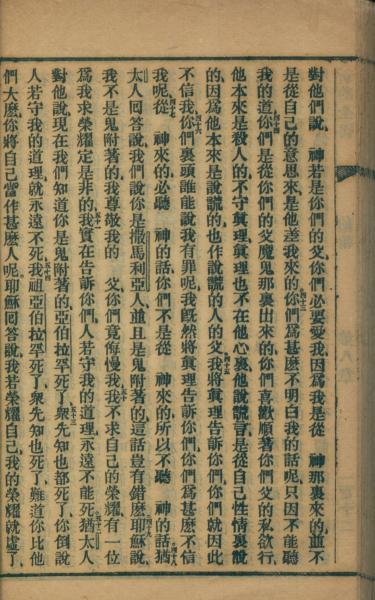 對他們說、 神若是你們的父、你們必要愛我、因爲我是從 神那裏來的、並不
是從自己的意思來、是他差我來的、四十三你們爲甚麽不明白我的話呢、只因不能聽
我的道、四十四你們是從你們的父魔鬼那裏出來的、你們喜歡順著你們父的私欲行、
他本來是殺人的、不守眞理、眞理也不在他心裏、他說謊言、是從自己性情裏說
的、因爲他本來是說謊的、也作說謊的人的父、四十五我將眞理告訴你們、你們就因此
不信我、四十六你們裏頭誰能說我有罪呢、我旣然將眞理告訴你們、你們爲甚麽不信
我呢、四十七從 神來的必聽 神的話、你們不是從 神來的、所以不聽 神的話、四十八猶
太人回答說、我們說你是撒馬利亞人、並且是鬼附著的、這話豈有錯麽、四十九耶穌說、
我不是鬼附著的、我尊敬我的 父、你們竟侮慢我、五十我不求自己的榮耀、有一位
爲我求榮耀定是非的、五十一我實在告訴你們、人若守我的道理、永遠不能死、五十二猶太人
對他說、現在我們知道你是鬼附著的、亞伯拉罕死了、衆先知也都死了、你倒說
人若守我的道理、就永遠不死、五十三我祖亞伯拉罕死了、衆先知也死了、難道你比他
們大麽、你將自己當作甚麽人呢、五十四耶穌回答說、我若榮耀自己、我的榮耀就虛了、